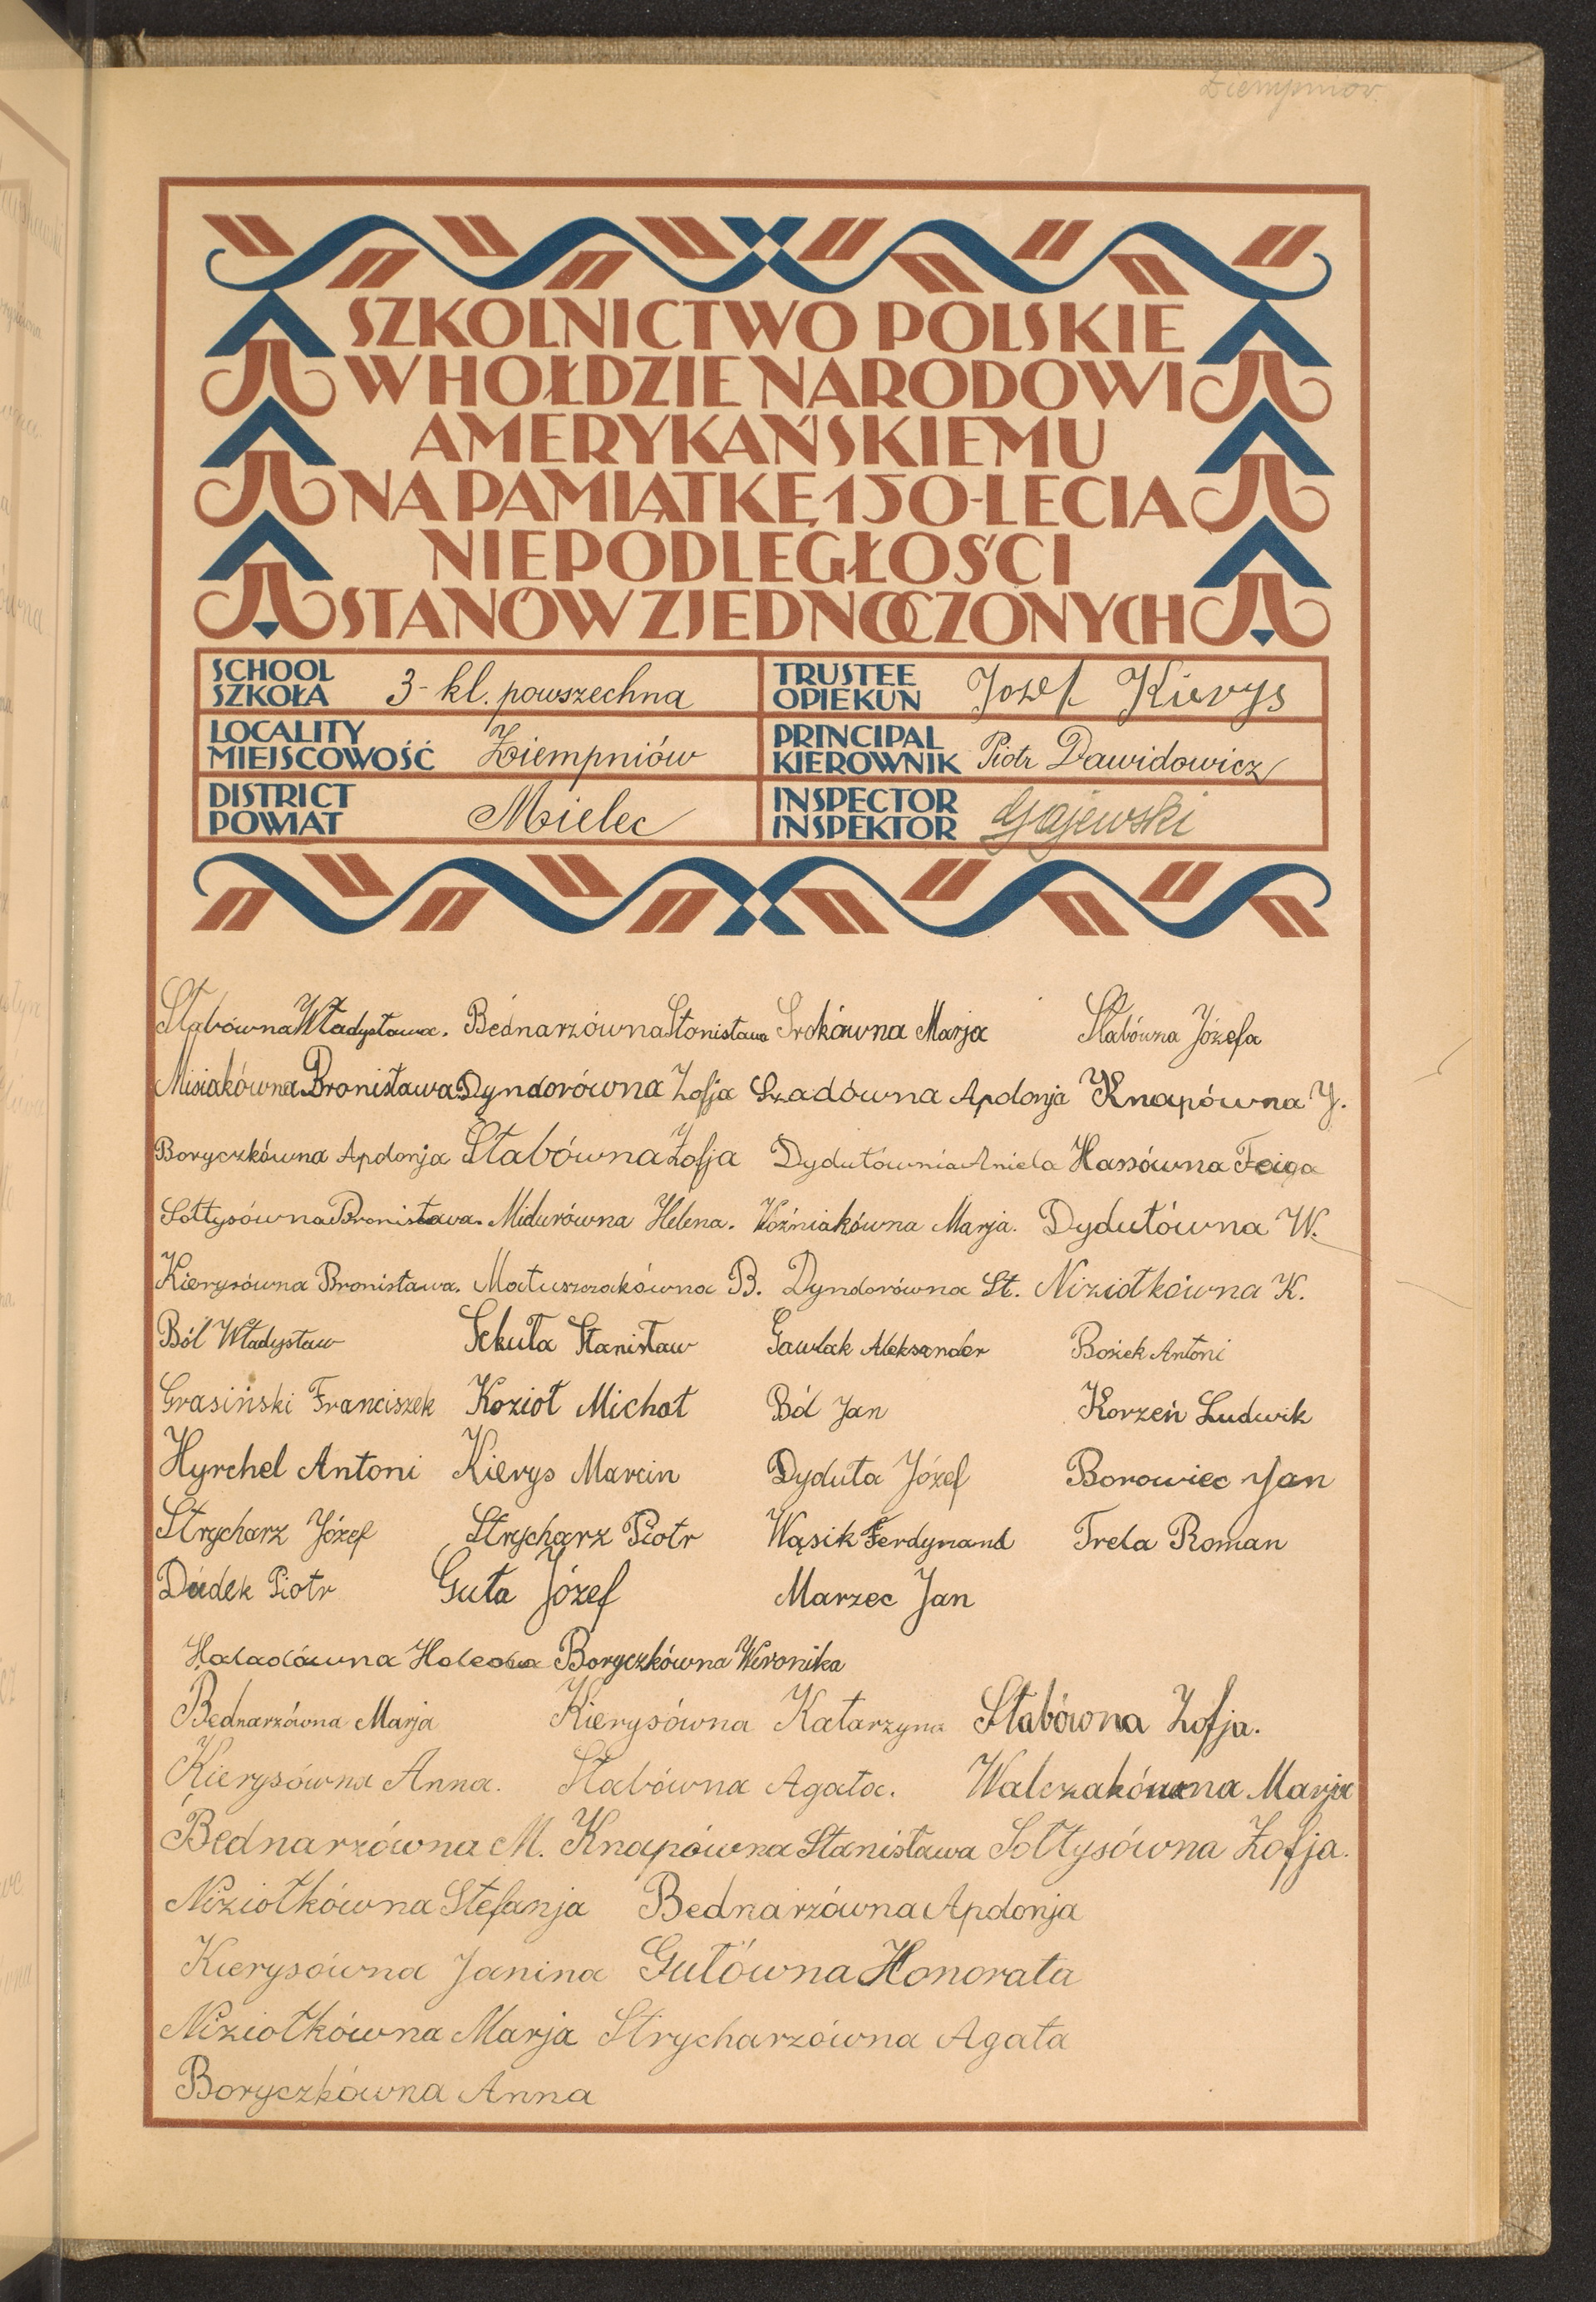 Ziempniów.
SZKOLNICTWO POLSKIE
W HOŁDZIE NARODOWI
AMERYKAŃSKIEMU
NA PAMIĄTKĘ 150-LECIA
NIEPODLEGŁOŚCI
STANÓW ZJEDNOCZONYCH
SCHOOL SZKOŁA 3-kl. powszechna TRUSTEE OPIEKUN Jozef Kierys
LOCALITY MIEJSCOWOŚĆ Ziempniów PRINCIPAL KIEROWNIK Piotr Dawidowicz
DISTRICT POWIAT Mielec INSPECTOR INSPEKTOR Gajewski
Słabówna Władysława. Bednarzówna Stanisława Srokówna Marja Słabówna Józefa
Misiakówna Bronisława Dyndorówna Zofja Szadówna Apolonja Knapówna J.
Boryczkówna Apolonja Słabówna Zofja Dydułównia Aniela Hassówna Feiga
Sołtysówna Bronisława. Midurówna Helena. Woźniakówna Marja. Dydułówna W.
Kierysówna Bronisława. Matuszczakówna B. Dyndorówna St. Niziołkówna K.
Ból Władysław Sekuła Stanisław Gawlak Aleksander Bosiek Antoni
Grasiński Franciszek Kozioł Michał Ból Jan Korzeń Ludwik
Hyrchel Antoni Kierys Marcin Dyduła Józef Borowiec Jan
Strycharz Józef Strycharz Piotr Wąsik Ferdynand Trela Roman
Dudek Piotr Guła Józef Marzec Jan
Boryczkówna Weronika
Bednarzówna Marja Kierysówna Katarzyna Słabówna Zofja.
Kierysówna Anna. Słabówna Agata. Walczakówna Marja
Bednarzówna M. Knapówna Stanisława Sołtysówna Zofja.
Niziołkówna Stefanja Bednarzówna Apolonja
Kierysówna Janina Gułówna Honorata
Niziołkówna Marja Strycharzówna Agata
Boryczkówna Anna